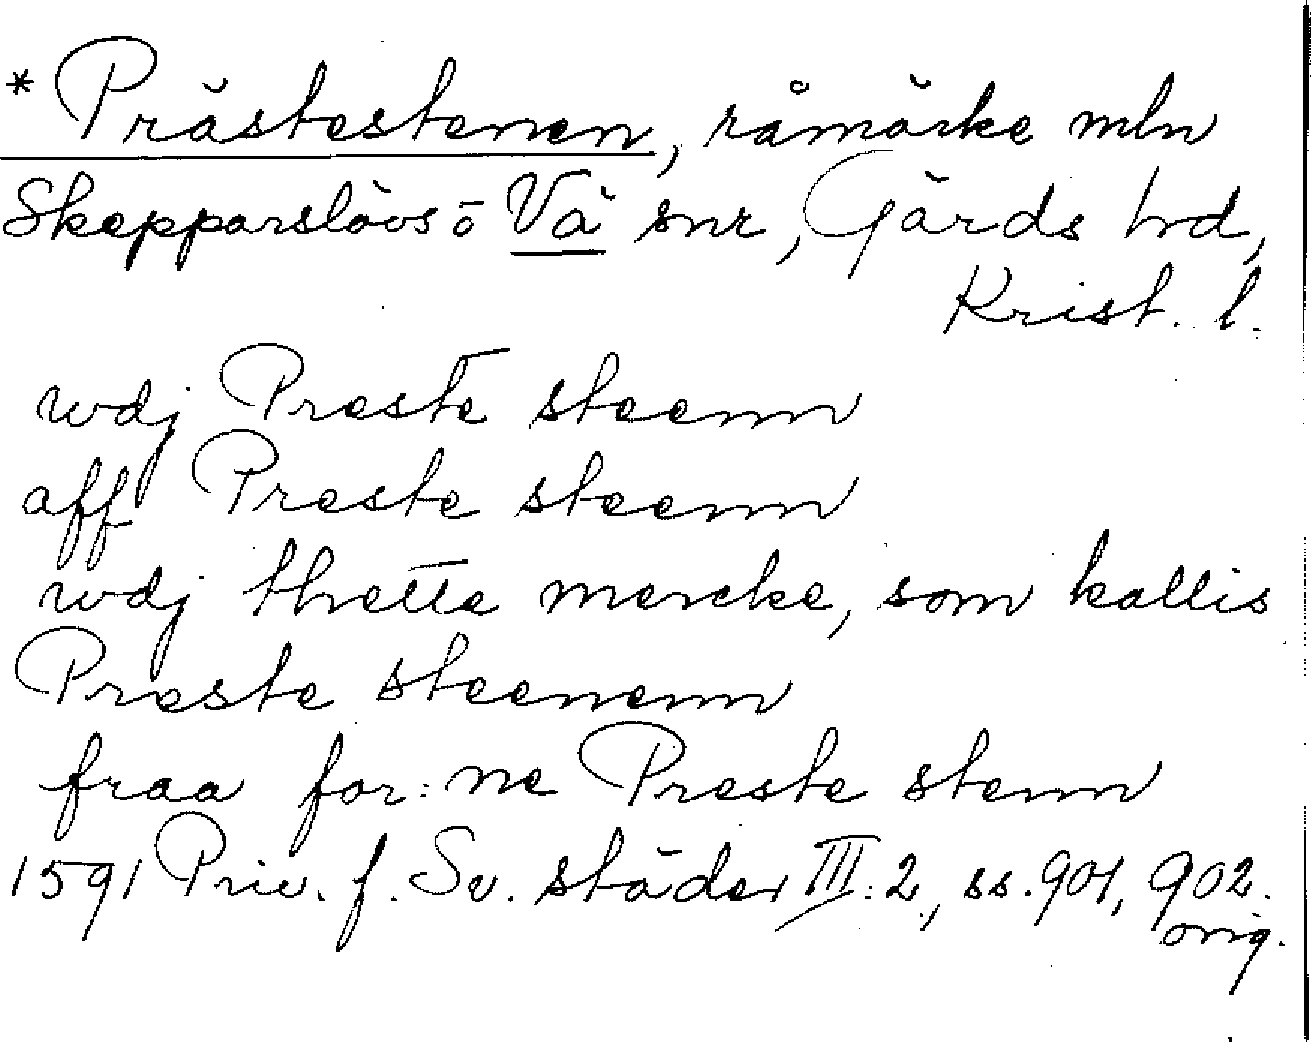 *Prästestenen, råmärke mln
Skepparslövs ō Vä snr, Gärds hd,
Krist. l.
wdj Preste steenn
aff Preste steenn
wdj thette mercke, som kallis
Preste steenenn
fraa for:ne Preste stenn
1591 Priv. f. Sv. städer III:2, ss. 901, 902.
orig.